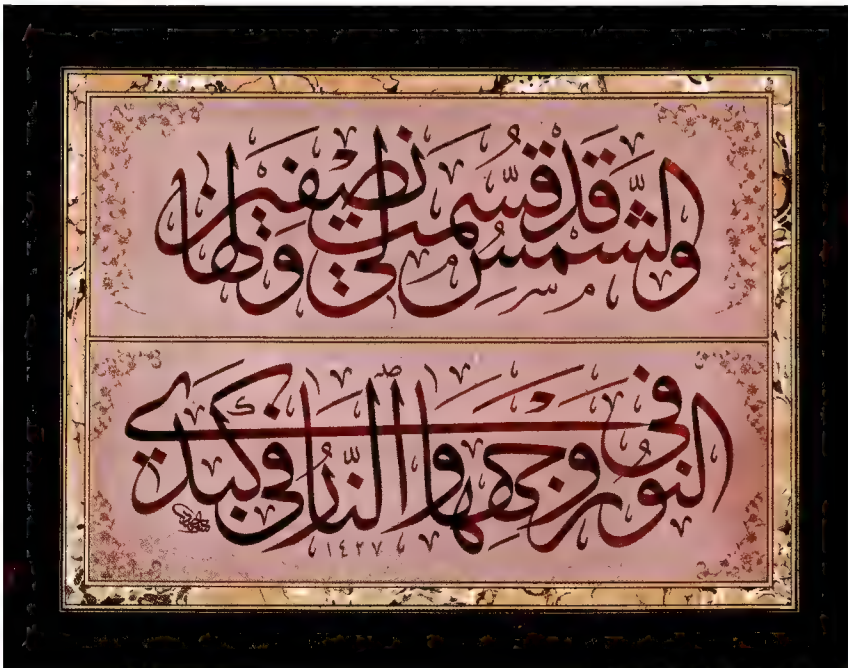 والشمس قد قُسِّمت نصفين لي ولها
النور في وجهها والنار في كبدي
١٤٢٧